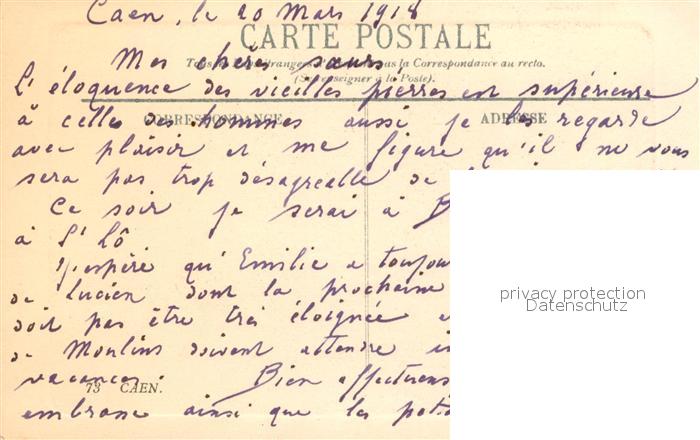 Caen, le 20 Mars 1918
CARTE POSTALE
Mes chères sœurs
la Correspondance au recto.
(Se renseigner à la Poste).
L'éloquence des vieilles pierres est supérieure
à celle des hommes aussi je les regarde
CORRESPONDANCE
ADRESSE
avec plaisir et me figure qu'il ne vous
sera pas trop désagréable de
Ce soir je serai à
à St Lô
J'espère qu'Emilie a
de Lucien dont la prochaine
doit pas être très éloignée
de Moulins doivent attendre
vacances. Bien
73 CAEN.
embrasse ainsi que les
privacy protection
Datenschutz